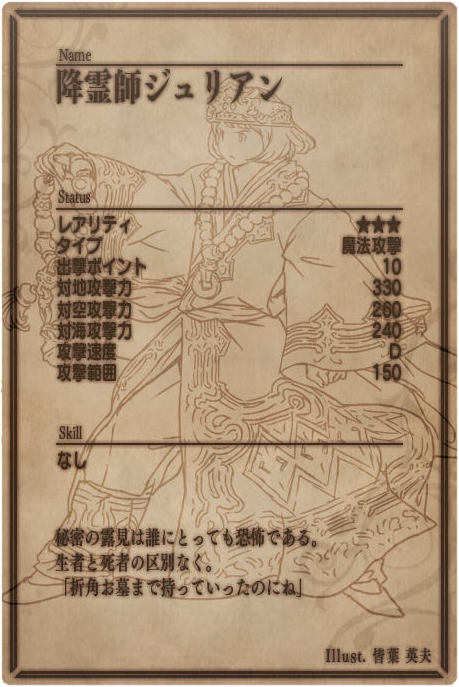 Name
降霊師ジュリアン
Status
レアリティ ★★★
タイプ 魔法攻撃
出撃ポイント 10
対地攻撃力 330
対空攻撃力 260
対海攻撃力 240
攻撃速度 D
攻撃範囲 150
Skill
なし
秘密の露見は誰にとっても恐怖である。
生者と死者の区別なく。
「折角お墓まで持っていったのにね」
Illust. 皆葉 英夫